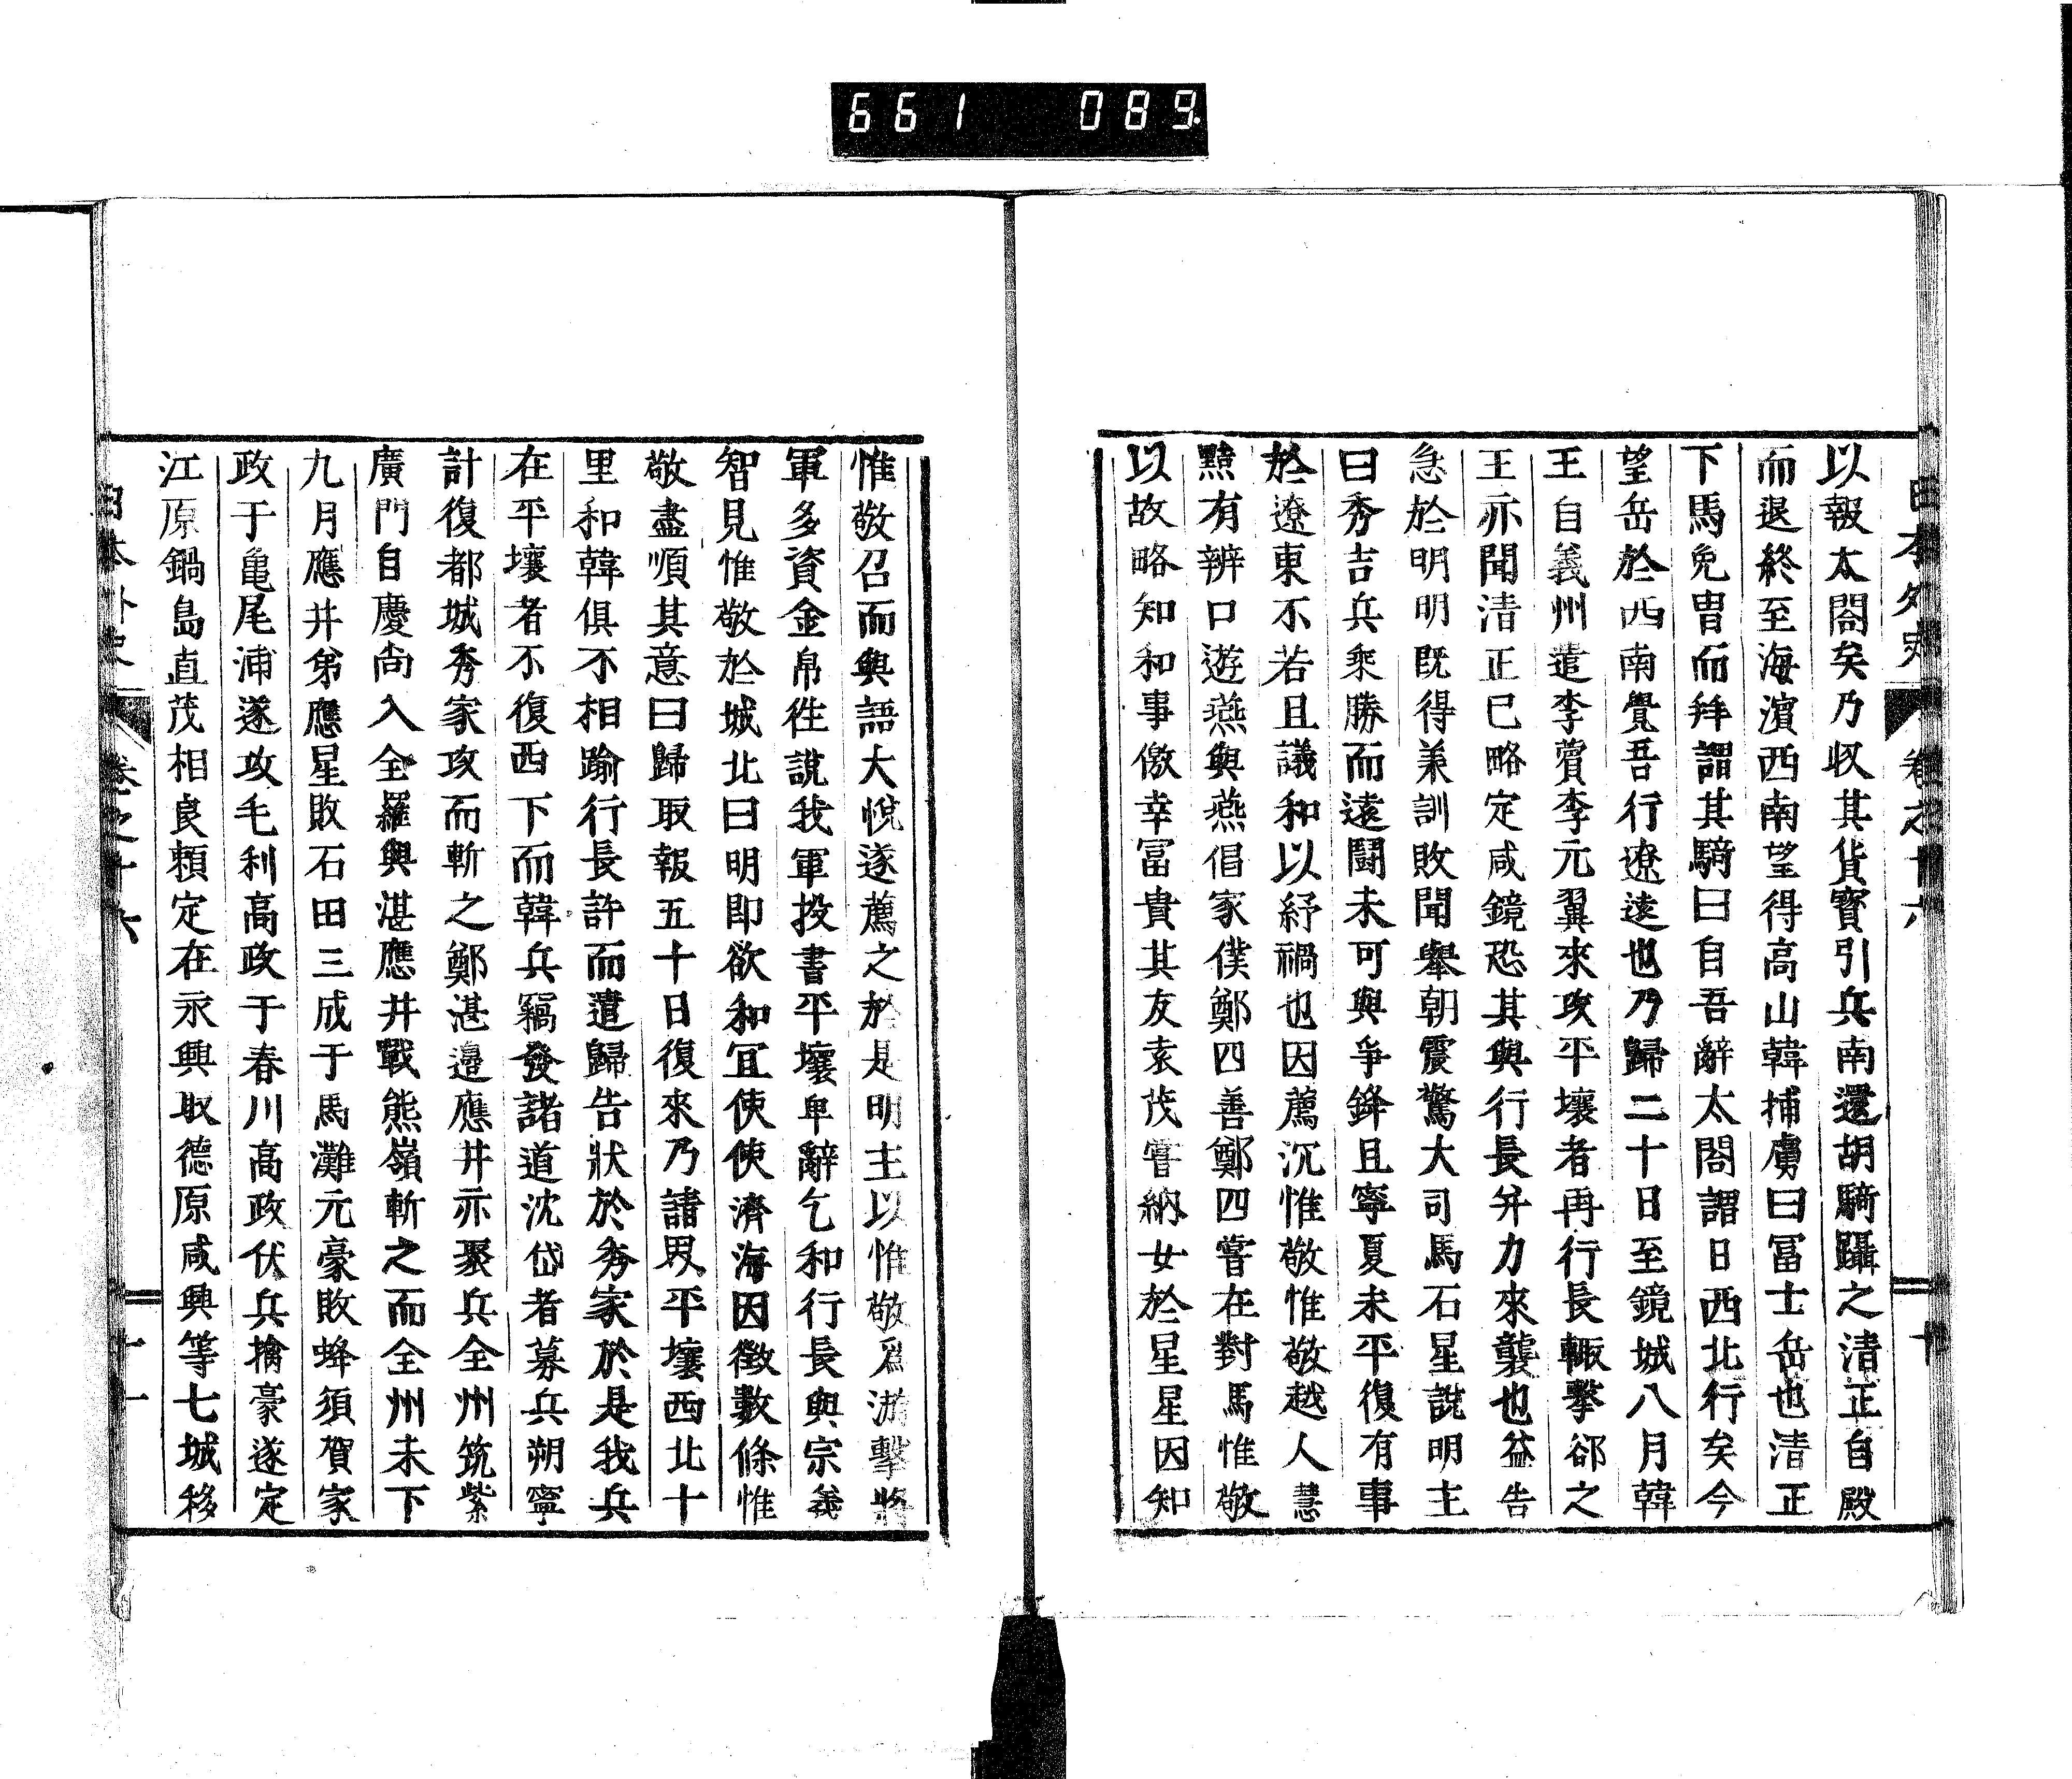 661 089
日本外史 卷之十六 十
以報太閤矣乃收其貨寶引兵南還胡騎躡之清正自殿
而退終至海濵西南望得高山韓捕虜曰冨士岳也清正
下馬免冑而拜謂其騎曰自吾辭太閤謂日西北行矣今
望岳於西南覺吾行遼遠也乃歸二十日至鏡城八月韓
王自義州遣李薲李元翼來攻平壤者再行長輙擊郤之
王亦聞清正已略定咸鏡恐其與行長并力來襲也益告
急於明明既得兼訓敗聞舉朝震驚大司馬石星說明主
曰秀吉兵乘勝而遠鬪未可與爭鋒且寧夏未平復有事
於遼東不若且議和以紓禍也因薦沉惟敬惟敬越人慧
黠有辨口遊燕與燕倡家僕鄭四善鄭四嘗在對馬惟敬
以故略知和事儌幸冨貴其友袁茂嘗納女於星星因知
惟敬召而與語大悅遂薦之於是明主以惟敬爲游擊將
軍多資金帛徃說我軍投書平壤卑辭乞和行長與宗義
智見惟敬於城北曰明即欲和宜使使濟海因徵數條惟
敬盡順其意曰歸取報五十日復來乃請畀平壤西北十
里和韓俱不相踰行長許而遣歸告狀於秀家於是我兵
在平壤者不復西下而韓兵竊發諸道沈岱者募兵朔寧
計復都城秀家攻而斬之鄭湛邉應井亦聚兵全州筑紫
廣門自慶尚入全羅與湛應井戰熊嶺斬之而全州未下
九月應井弟應星敗石田三成于馬灘元豪敗蜂須賀家
政于亀尾浦遂攻毛利高政于春川高政伏兵擒豪遂定
江原鍋島直茂相良頼定在永興取德原咸興等七城移
日本外史 卷之十六 十一